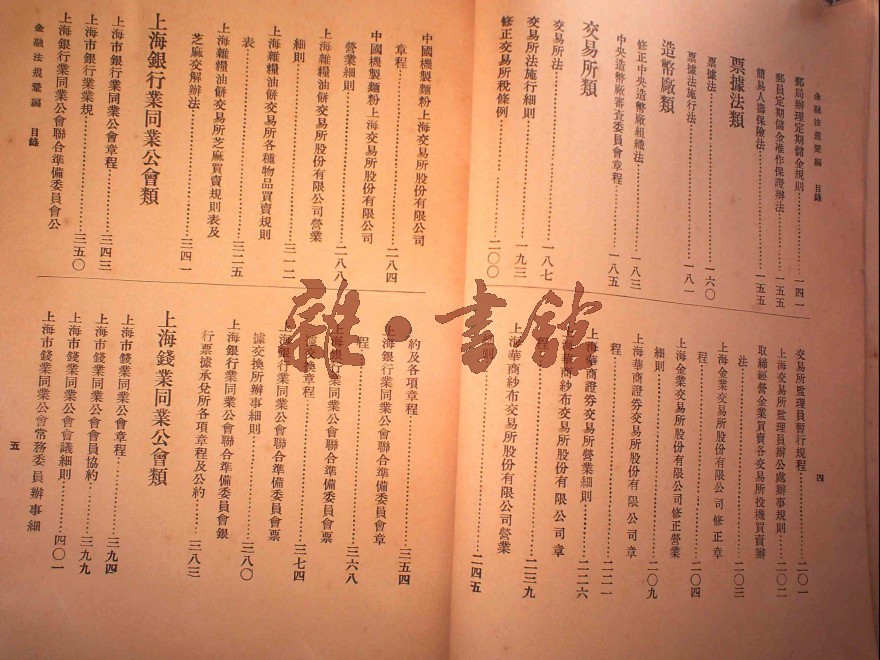 金融法規彙編 目錄
郵局辦理定期儲金規則……一四一
郵員定期儲金准作保證辦法……一五五
簡易人壽保險法……一五五
票據法類
票據法……一六〇
票據法施行法……一八一
造幣廠類
修正中央造幣廠組織法……一八三
中央造幣廠審查委員會章程……一八五
交易所類
交易所法……一八七
交易所法施行細則……一九三
修正交易所稅條例……二〇〇
四
交易所監理員暫行規程……二〇一
上海交易所監理員辦公處辦事規則……二〇二
取締經營金業買賣各交易所投機買賣辦
法……二〇三
上海金業交易所股份有限公司修正章
程……二〇四
上海金業交易所股份有限公司修正營業
細則……二〇九
上海華商證券交易所股份有限公司章
程……二二一
上海華商證券交易所營業細則……二二六
上海華商紗布交易所股份有限公司章
程……二三九
上海華商紗布交易所股份有限公司營業
細則……二四五
中國機製麵粉上海交易所股份有限公司
章程……二八四
中國機製麵粉上海交易所股份有限公司
營業細則……二八八
上海雜糧油餅交易所股份有限公司營業
細則……三一二
上海雜糧油餅交易所各種物品買賣規則
表……三二五
上海雜糧油餅交易所芝麻買賣規則表及
芝麻交解辦法……三四一
上海銀行業同業公會類
上海市銀行業同業公會章程……三四三
上海市銀行業業規……三五〇
上海銀行業同業公會聯合準備委員會公
金融法規彙編 目錄
約及各項章程……三五四
上海銀行業同業公會聯合準備委員會章
程……三六八
上海銀行業同業公會聯合準備委員會票
據交換章程……三七四
上海銀行業同業公會聯合準備委員會票
據交換所辦事細則……三八〇
上海銀行業同業公會聯合準備委員會銀
行票據承兌所各項章程及公約……三八三
上海錢業同業公會類
上海市錢業同業公會章程……三九四
上海市錢業同業公會會員協約……三九九
上海市錢業同業公會會議細則……四〇一
上海市錢業同業公會常務委員辦事細
五
雜·書館